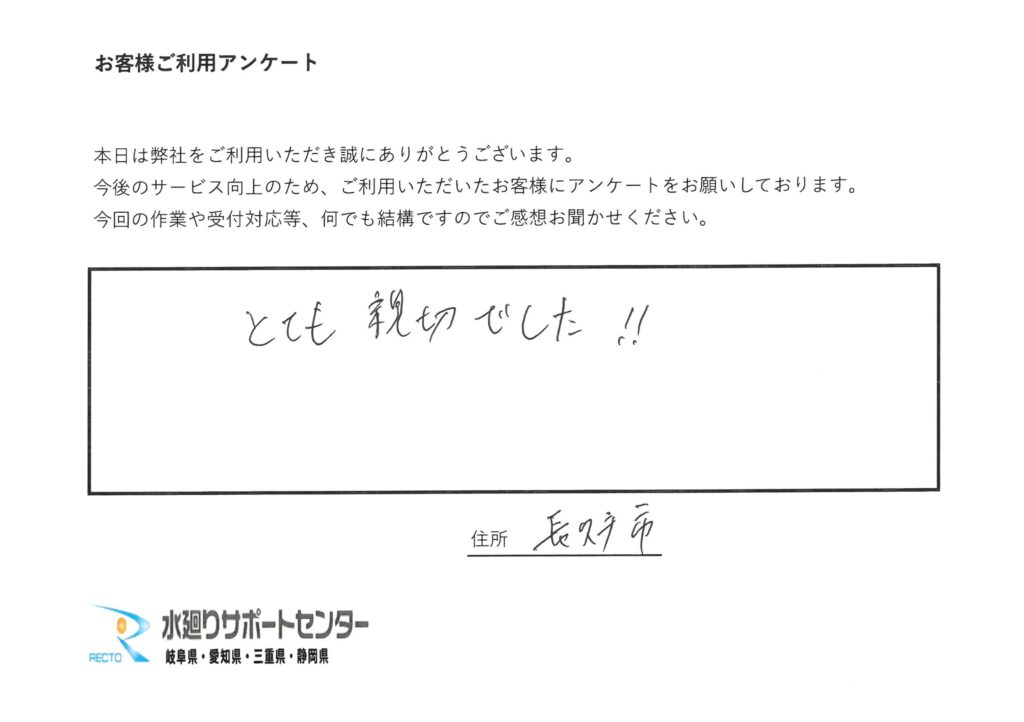 お客様ご利用アンケート
本日は弊社をご利用いただき誠にありがとうございます。
今後のサービス向上のため、ご利用いただいたお客様にアンケートをお願いしております。
今回の作業や受付対応等、何でも結構ですのでご感想お聞かせください。
とても親切でした!!
住所 長久手市
RECTO
水廻りサポートセンター
岐阜県・愛知県・三重県・静岡県